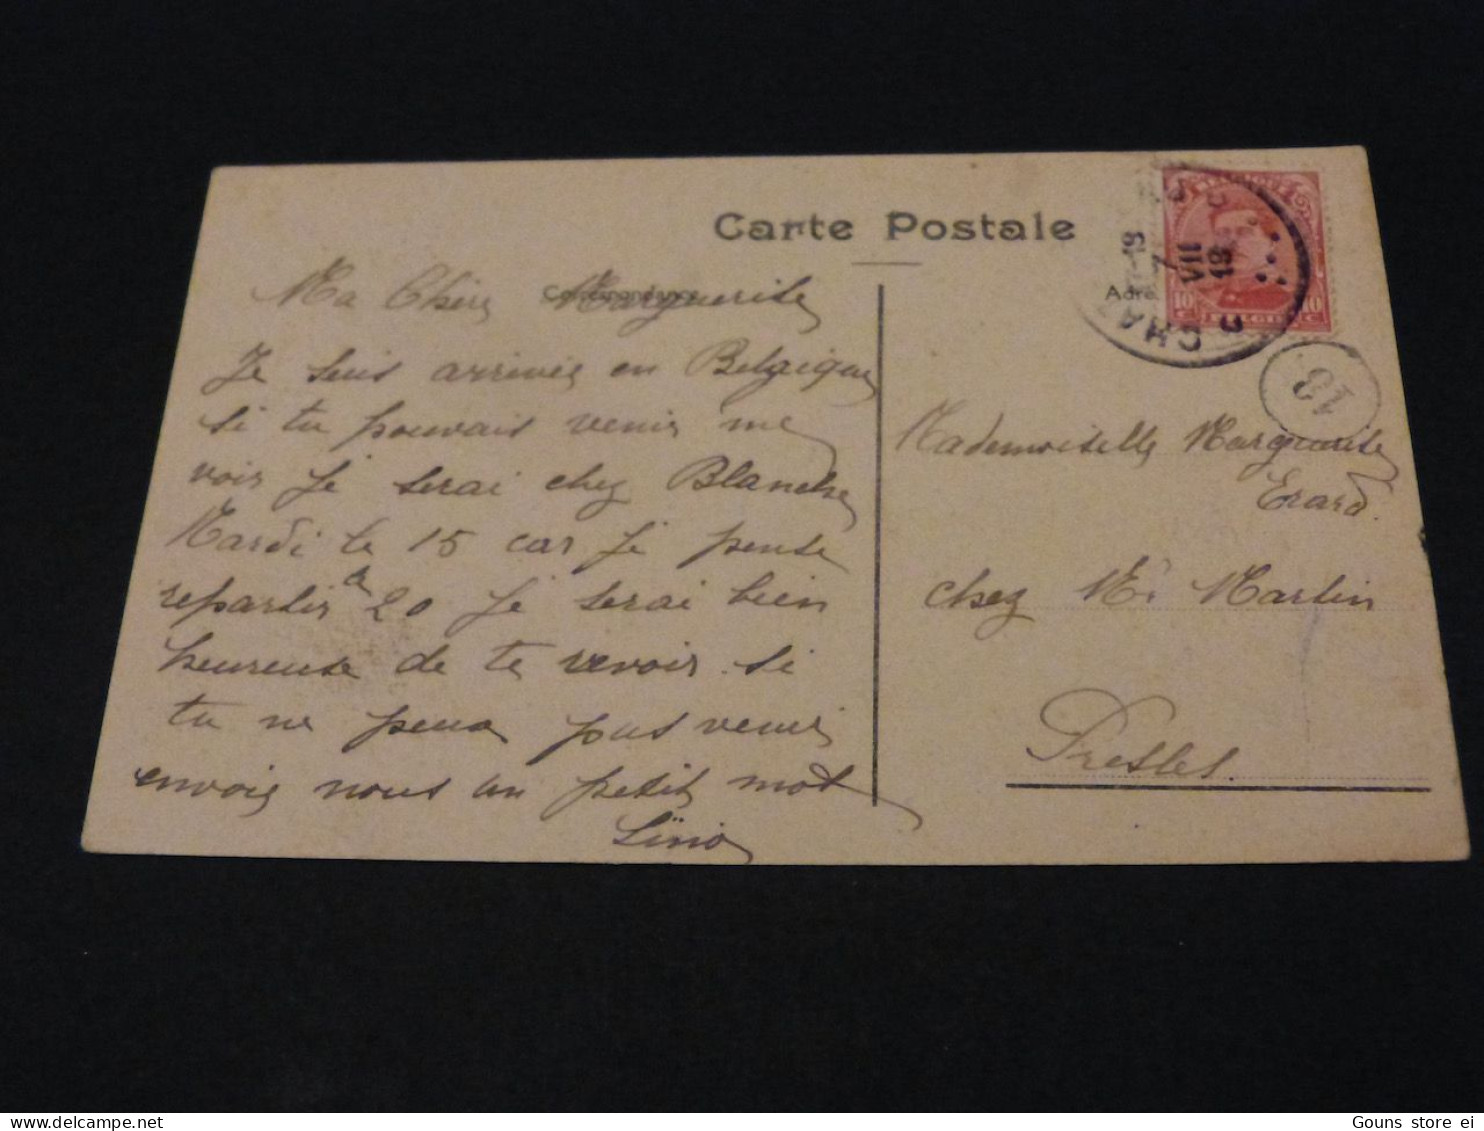 Carte Postale
Correspondance
Adre
Ma Chère Marguerite
Je suis arrivée en Belgique
si tu pouvais venir me
voir Je serai chez Blanche
Mardi le 15 car Je pense
repartir a 20 Je serai bien
heureuse de te revoir si
tu ne peux pas venir
envoie nous un petit mot
Mademoiselle Marguerite
Erard.
chez Mr Martin
Presles.
BELGIQUE
10 c 10 c
BELGIE
CHA
17-19
7
VII
19
13
Gouns store ei